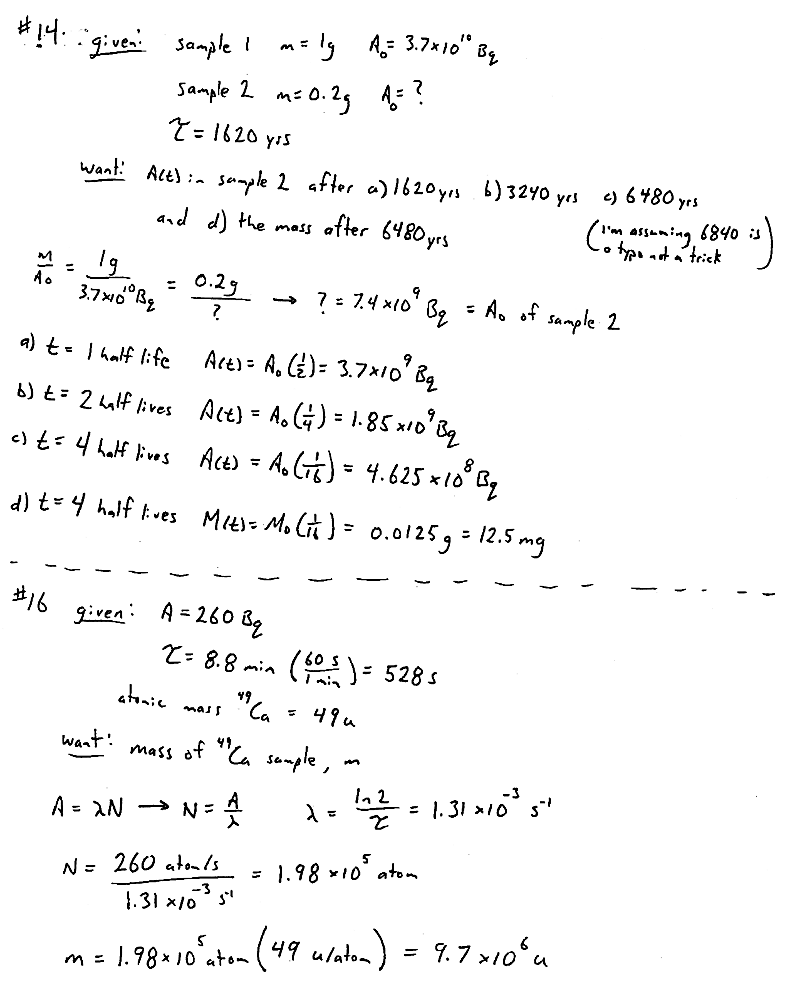 #14. given: sample 1 m = 1g A₀ = 3.7×10¹⁰ Bq
sample 2 m = 0.2g A₀ = ?
τ = 1620 yrs
want: A(t) in sample 2 after a) 1620 yrs b) 3240 yrs c) 6480 yrs
and d) the mass after 6480 yrs (I'm assuming 6840 is a typo not a trick)
M/A₀ = 1g / 3.7×10¹⁰ Bq = 0.2g / ? → ? = 7.4×10⁹ Bq = A₀ of sample 2
a) t = 1 half life A(t) = A₀(1/2) = 3.7×10⁹ Bq
b) t = 2 half lives A(t) = A₀(1/4) = 1.85×10⁹ Bq
c) t = 4 half lives A(t) = A₀(1/16) = 4.625×10⁸ Bq
d) t = 4 half lives M(t) = M₀(1/16) = 0.0125g = 12.5 mg
#16 given: A = 260 Bq
τ = 8.8 min (60 s / 1 min) = 528 s
atomic mass ⁴⁹Ca = 49u
want: mass of ⁴⁹Ca sample, m
A = λN → N = A/λ λ = ln 2 / τ = 1.31×10⁻³ s⁻¹
N = 260 atom/s / 1.31×10⁻³ s⁻¹ = 1.98×10⁵ atom
m = 1.98×10⁵ atom (49 u/atom) = 9.7×10⁶ u